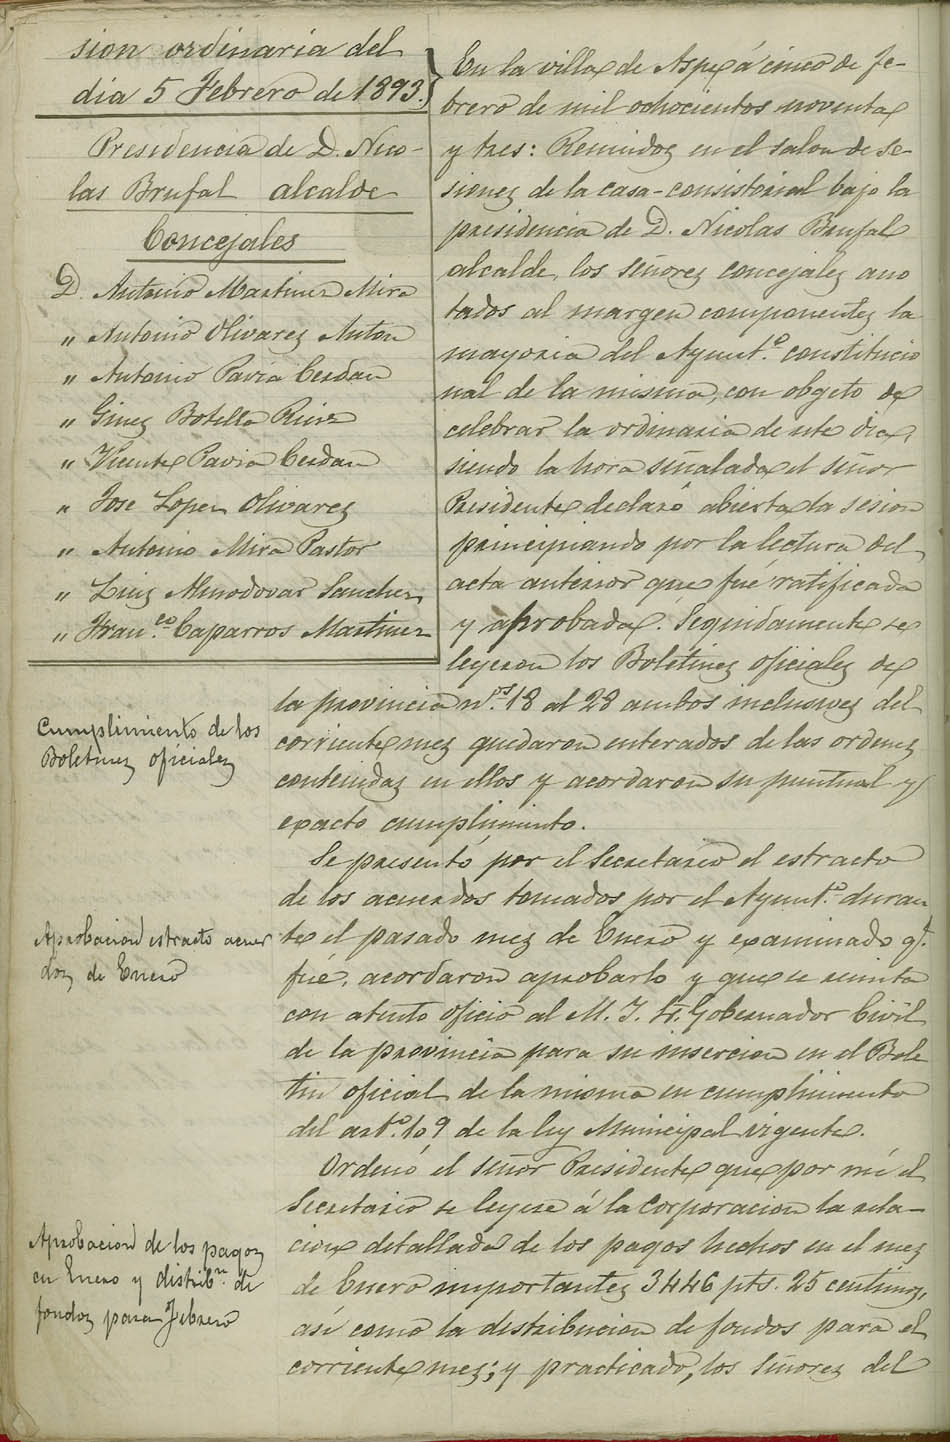 sion ordinaria del
dia 5 Febrero de 1893.
Presidencia de D. Nico-
las Brufal alcalde
Concejales
D. Antonio Martinez Mira
" Antonio Olivares Anton
" Antonio Pavia Cerdan
" Gines Botella Ruiz
" Vicente Pavia Cerdan
" Jose Lopez Olivares
" Antonio Mira Pastor
" Luis Almodovar Sanchez
" Fran.co Caparros Martinez
En la villa de Aspe á cinco de fe-
brero de mil ochocientos noventa
y tres: Reunidos en el salon de se-
siones de la casa-consistorial bajo la
presidencia de D. Nicolas Brufal
alcalde, los señores concejales ano
tados al margen componentes la
mayoria del Ayunt.o constitucio
nal de la misma, con obgeto de
celebrar la ordinaria de este dia,
siendo la hora señalada el señor
Presidente declaró abierta la sesion
principiando por la lectura del
acta anterior que fué ratificada
y aprobada. Seguidamente se
leyeron los Boletines oficiales de
la provincia n.os 18 al 28 ambos inclusives del
corriente mes quedaron enterados de las ordenes
contenidas en ellos y acordaron su puntual y
exacto cumplimiento.
Se presentó por el Secretario el estracto
de los acuerdos tomados por el Ayunt.o duran
te el pasado mes de Enero y examinado q.e
fué, acordaron aprobarlo y que se remita
con atento oficio al M. I. Sr. Gobernador Civil
de la provincia para su insercion en el Bole
tin oficial de la misma en cumplimiento
del art.o 109 de la ley Municipal vigente.
Ordenó el señor Presidente que por mi el
Secretario se leyese á la corporacion la rela-
cion detallada de los pagos hechos en el mes
de Enero importantes 3446 pts. 25 centimos,
asi como la distribucion de fondos para el
corriente mes; y practicado, los señores del
Cumplimiento de los
Boletines oficiales
Aprobacion estracto acuer
dos de Enero
Aprobacion de los pagos
en Enero y distrib.n de
fondos para Febrero